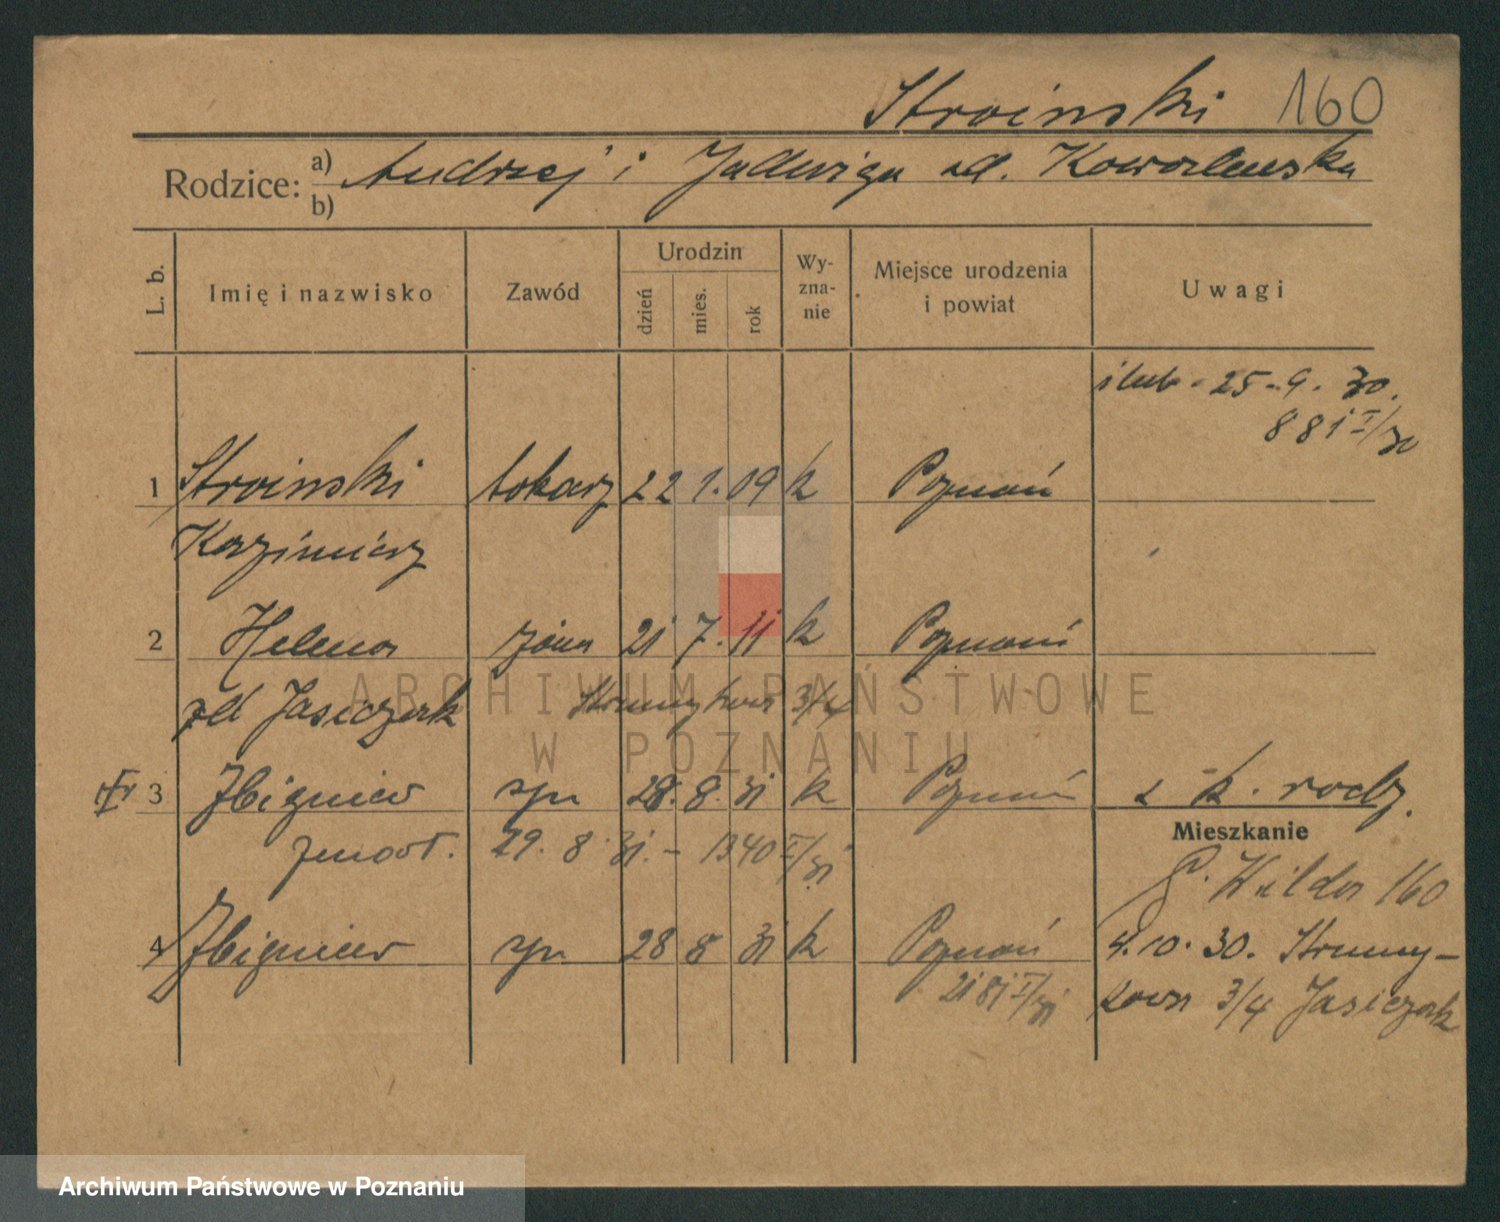 Stroinski 160
Rodzice: a) Andrzej i Jadwiga zd. Kowalewska
b)
L. b. Imię i nazwisko Zawód Urodzin dzień mies. rok Wyznanie Miejsce urodzenia i powiat Uwagi
ślub 25-9. 30.
881 I/30
1 Stroinski tokarz 22 1. 09 k Poznań
Kazimierz
2 Helena żona 21 7. 11 k Poznań
zd Jasiczak Strumykowa 3/4
3 Zbigniew syn 28. 8. 31 k Poznań k. rodz.
zmarł. 29. 8. 31. - 1340 I/31
Mieszkanie
G. Wilda 160
4 Zbigniew syn 28 8 31 k Poznań 4.10. 30. Strumy-
2181 I/31 kowa 3/4 Jasiczak
ARCHIWUM PAŃSTWOWE
W POZNANIU
Archiwum Państwowe w Poznaniu